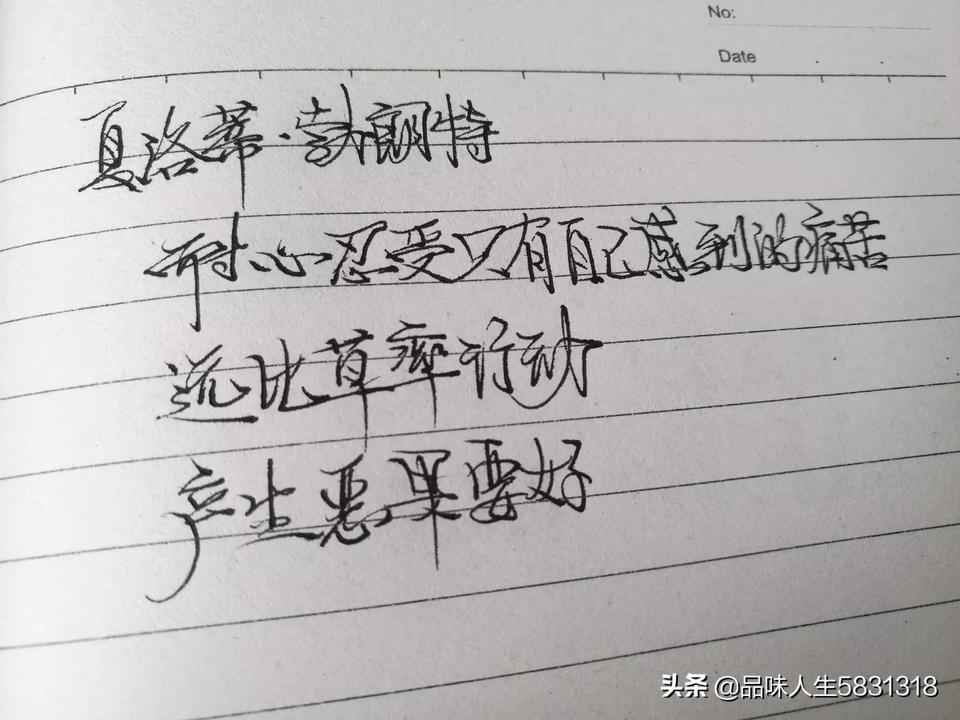 No:
Date
夏洛蒂·勃朗特
耐心忍受只有自己感到的痛苦
远比草率行动
产生恶果要好
头条 @品味人生5831318